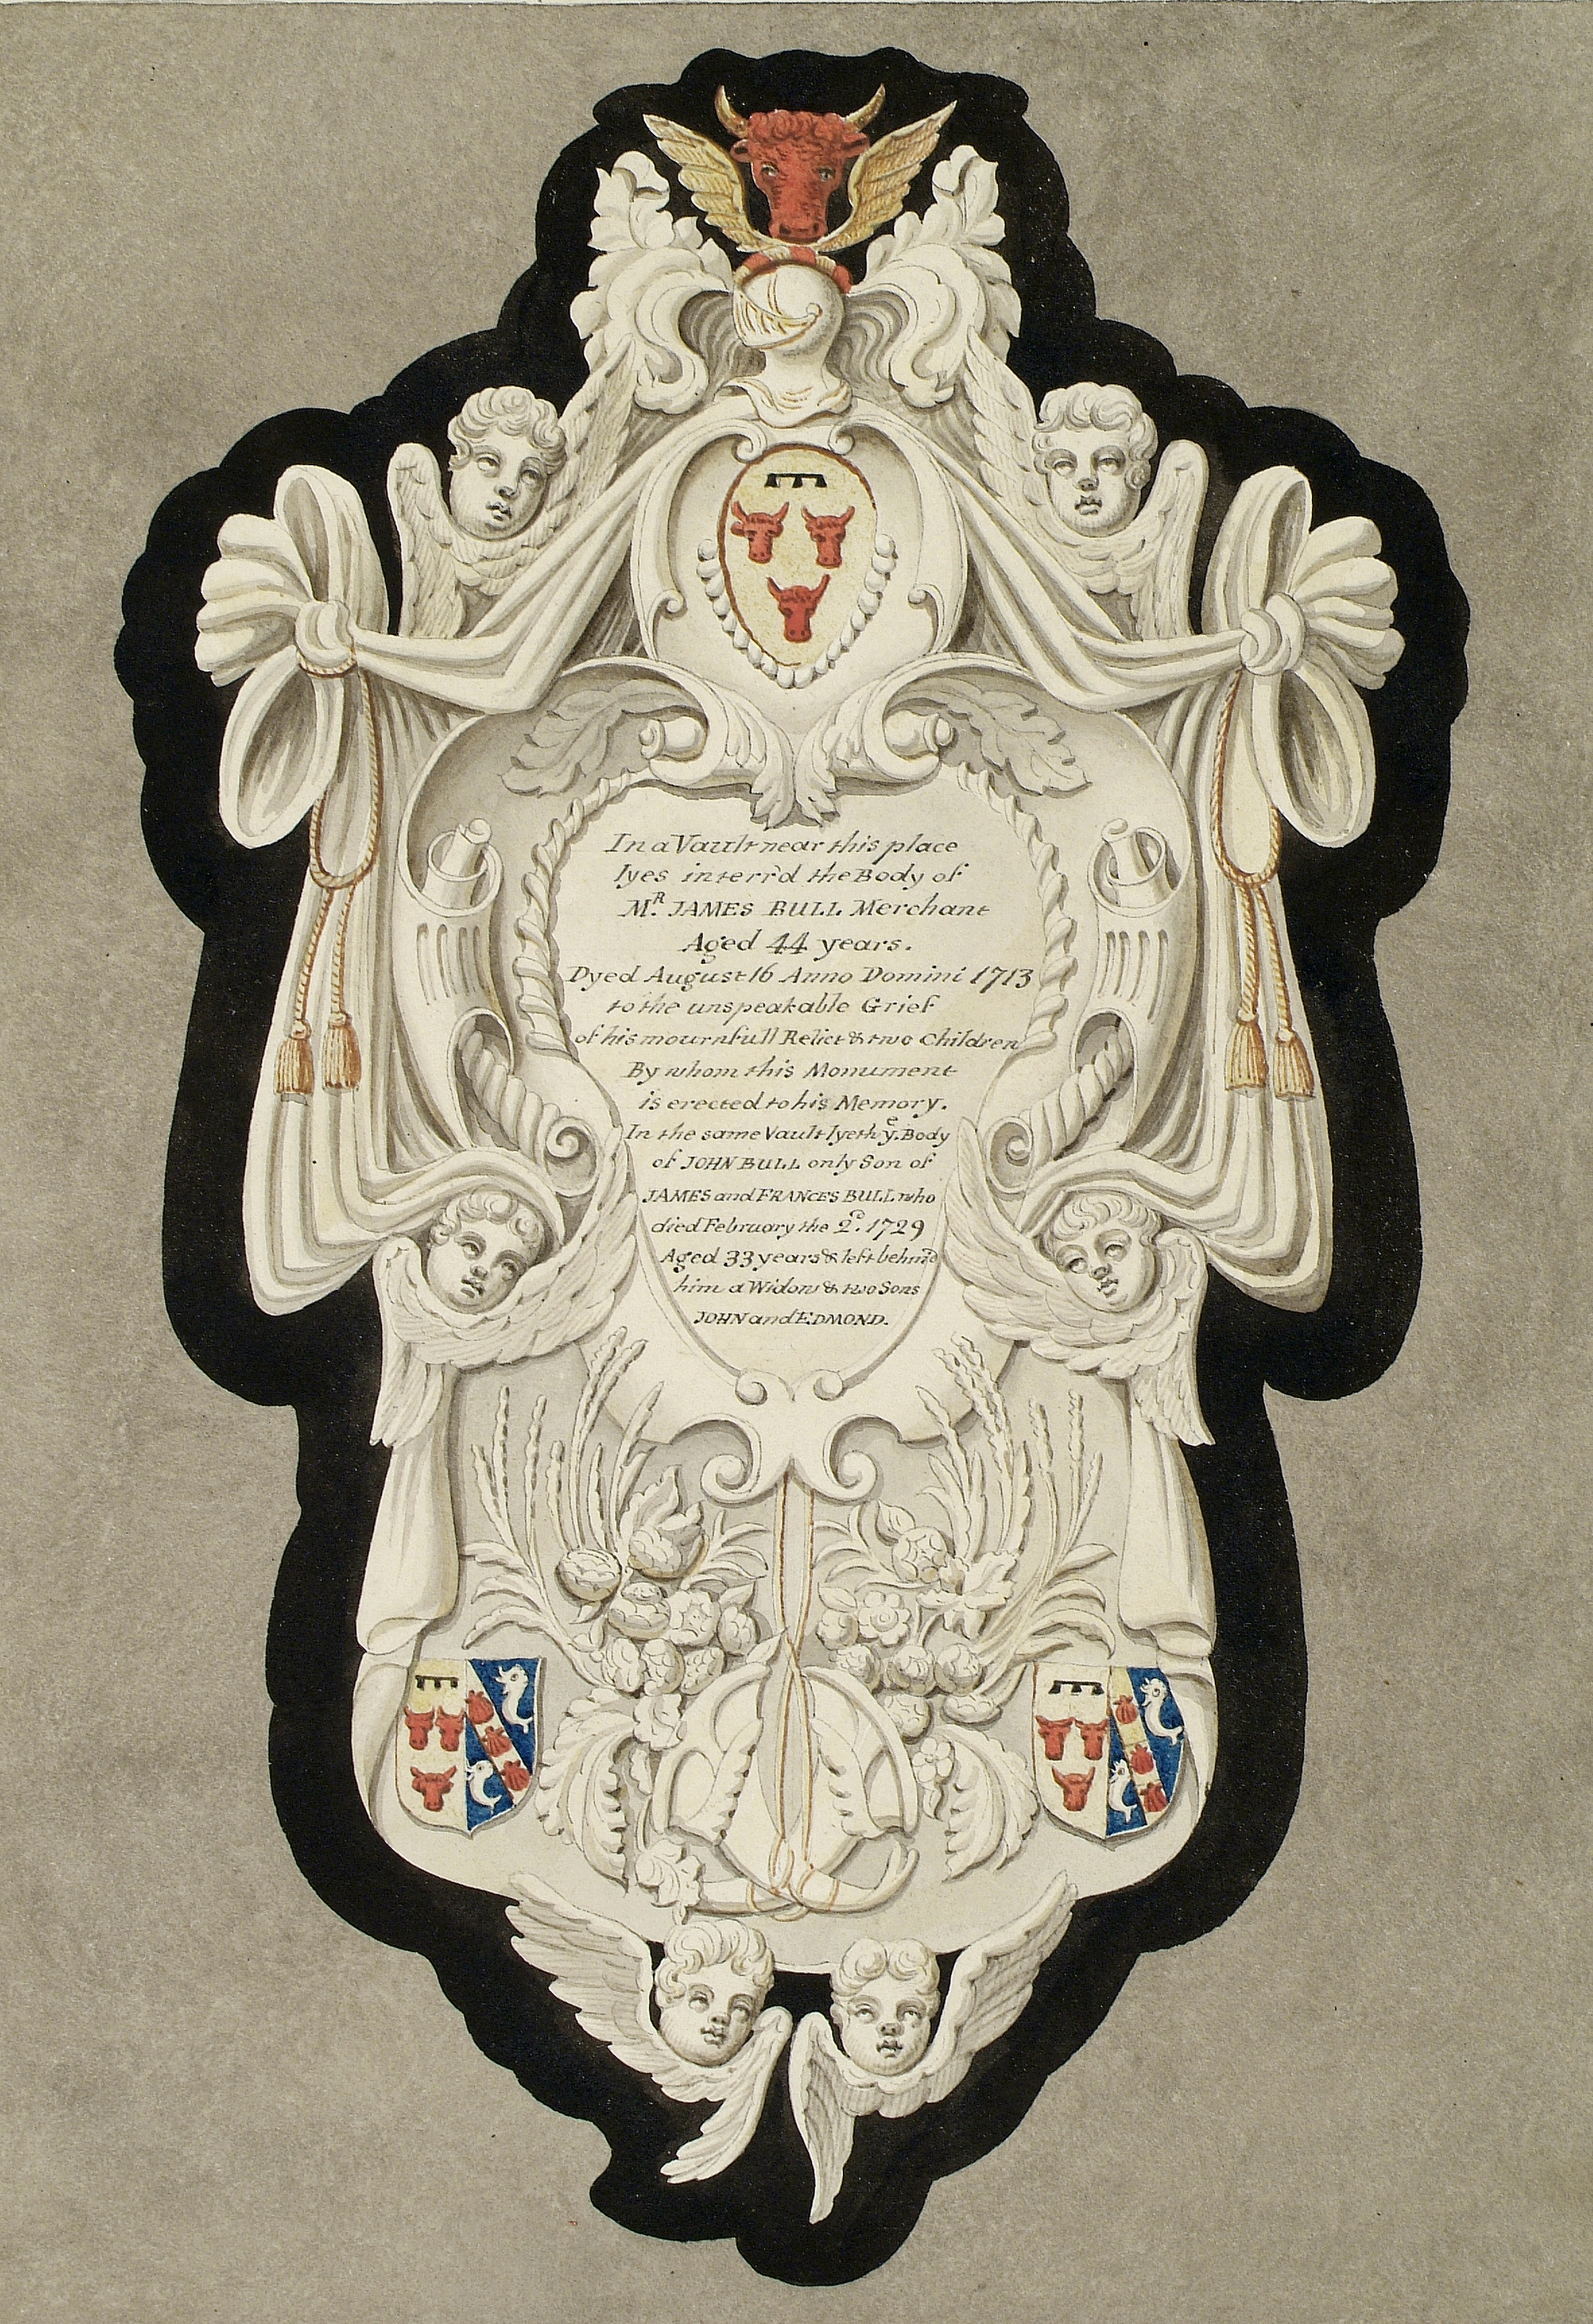 In a Vault near this place
lyes interr'd the Body of
M.R JAMES BULL Merchant
Aged 44 years.
Dyed August 16 Anno Domini 1713
to the unspeakable Grief
of his mournfull Relict & two Children
By whom this Monument
is erected to his Memory.
In the same Vault lyeth y.e Body
of JOHN BULL only Son of
JAMES and FRANCES BULL who
died February the 2.d 1729
Aged 33 years & left behind
him a Widow & two Sons
JOHN and EDMOND.